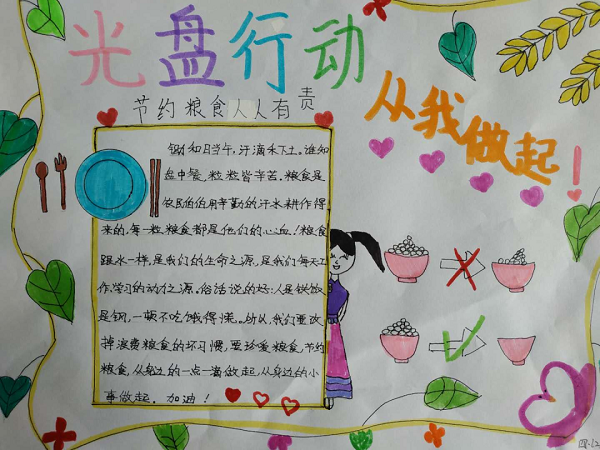 光盘行动
节约粮食人人有责
从我做起！
锄禾日当午，汗滴禾下土。谁知
盘中餐，粒粒皆辛苦。粮食是
农民伯伯用辛勤的汗水耕作得
来的，每一粒粮食都是他们的心血！粮食
跟水一样，是我们的生命之源，是我们每天工
作，学习的动力之源，俗话说的好：人是铁饭
是钢，一顿不吃饿得慌。所以，我们要改
掉浪费粮食的坏习惯，要珍爱粮食，节约
粮食，从身边的一点一滴做起，从身边的小
事做起。加油！
四.12